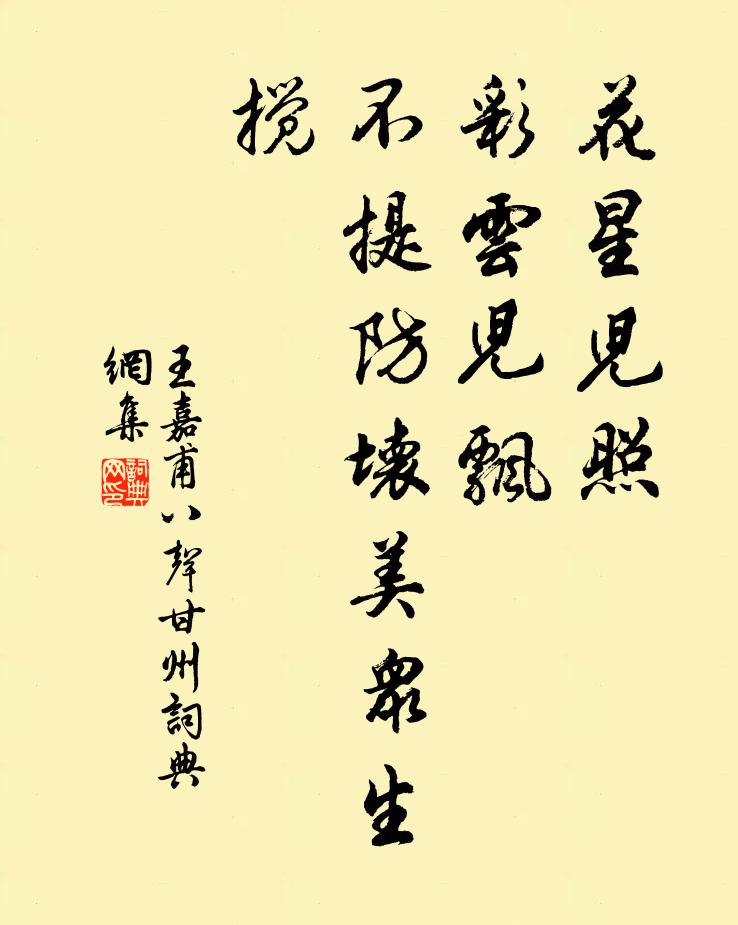 花星児照
彩雲児飄
不提防壞美眾生
攪
王嘉甫八聲甘州詞典
網集
詞典
网印